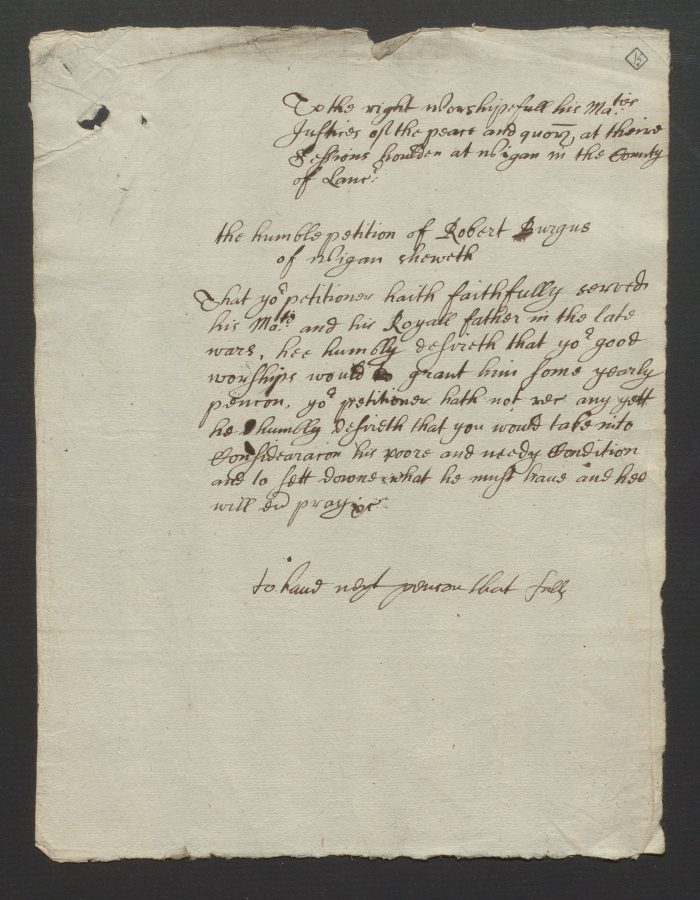 15
To the right worshipefull his Ma:ties
Justices of the peace and quorz at theire
Sessions houlden at wigan in the County
of Lanc:
the humble petition of Robert Burgus
of wigan sheweth
That yor petitioner haith faithfully served
his Ma:tie and his Royall father in the late
wars, hee humbly desireth that yor good
worships would grant him some yearly
pencon, yor petitioner hath not rec any yett
he humbly desireth that you would take into
Considearacon his poore and needy Condition
and to sett downe what he must have and hee
will ev pray &c:
to have next pencon that falls